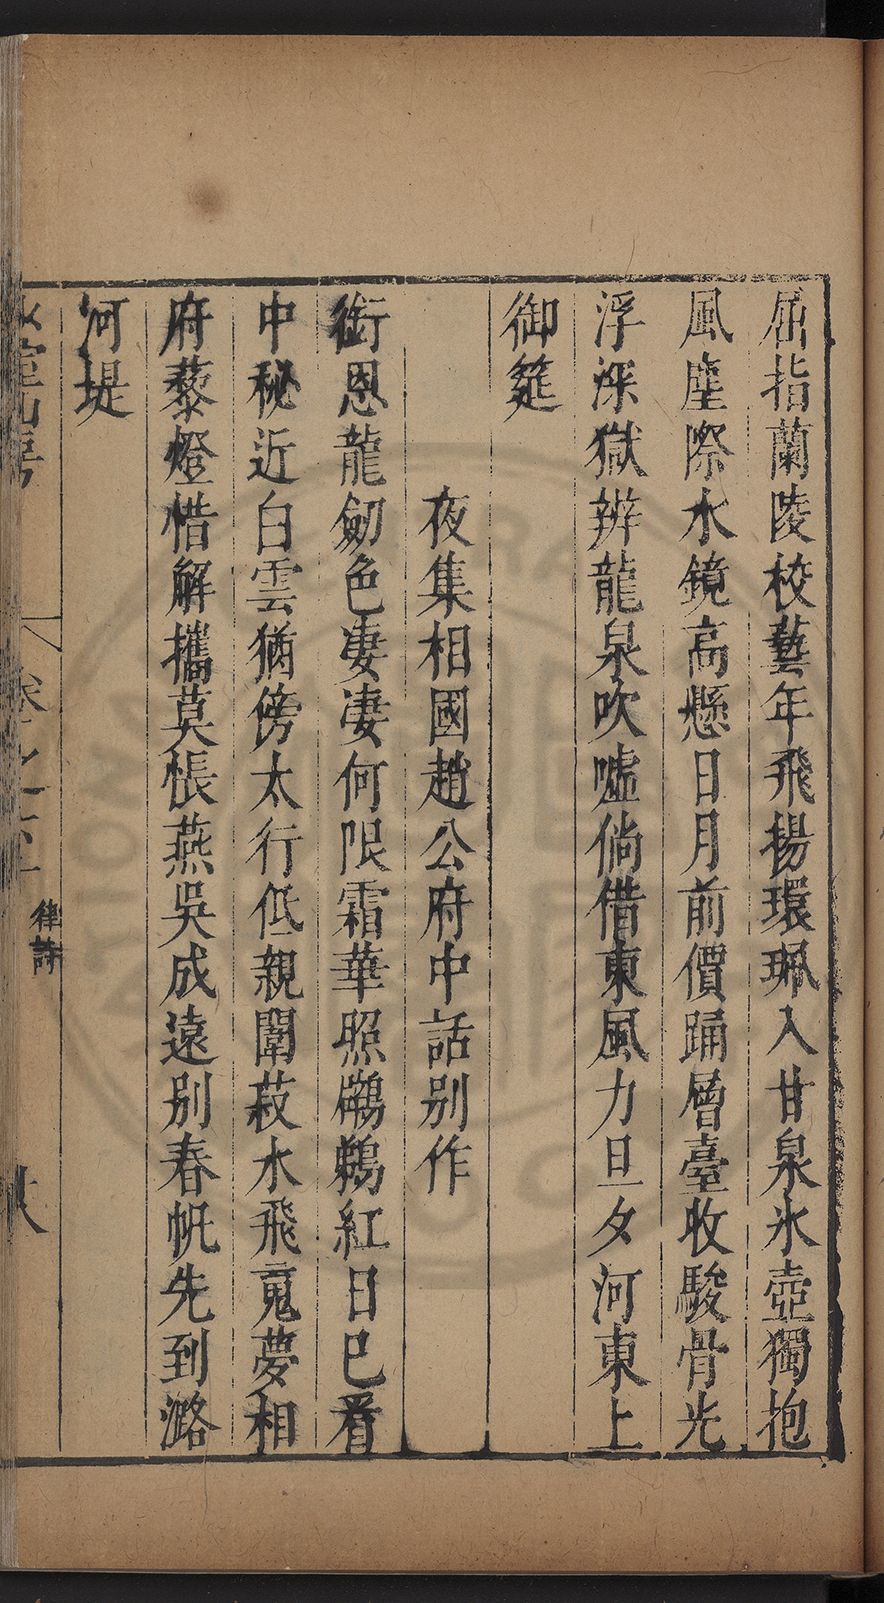 屈指蘭陵校藝年飛揚環珮入甘泉氷壺獨抱
風塵際水鏡高懸日月前價踊層臺收駿骨光
浮深獄辨龍泉吹噓倘借東風力旦夕河東上
御筵
夜集相國趙公府中話别作
銜恩龍劒色凄凄何限霜華照鸊鵜紅日巳看
中秘近白雲猶傍太行低親闈菽水飛䰟夢相
府藜燈惜解攜莫悵燕吳成遠别春帆先到潞
河堤
律詩